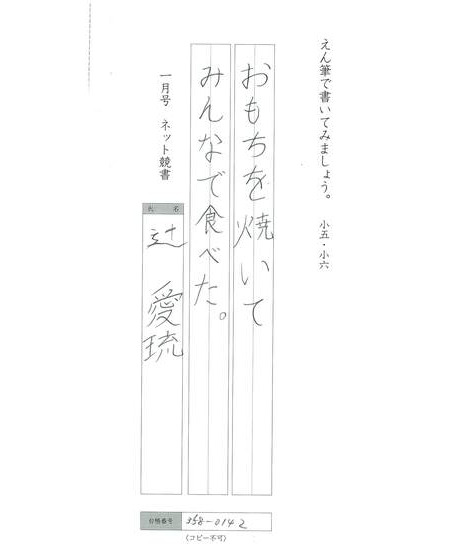 えん筆で書いてみましょう。 小五・小六
おもちを焼いて
みんなで食べた。
一月号 ネット競書
氏名
辻 愛琉
台帳番号 358-0142
(コピー不可)